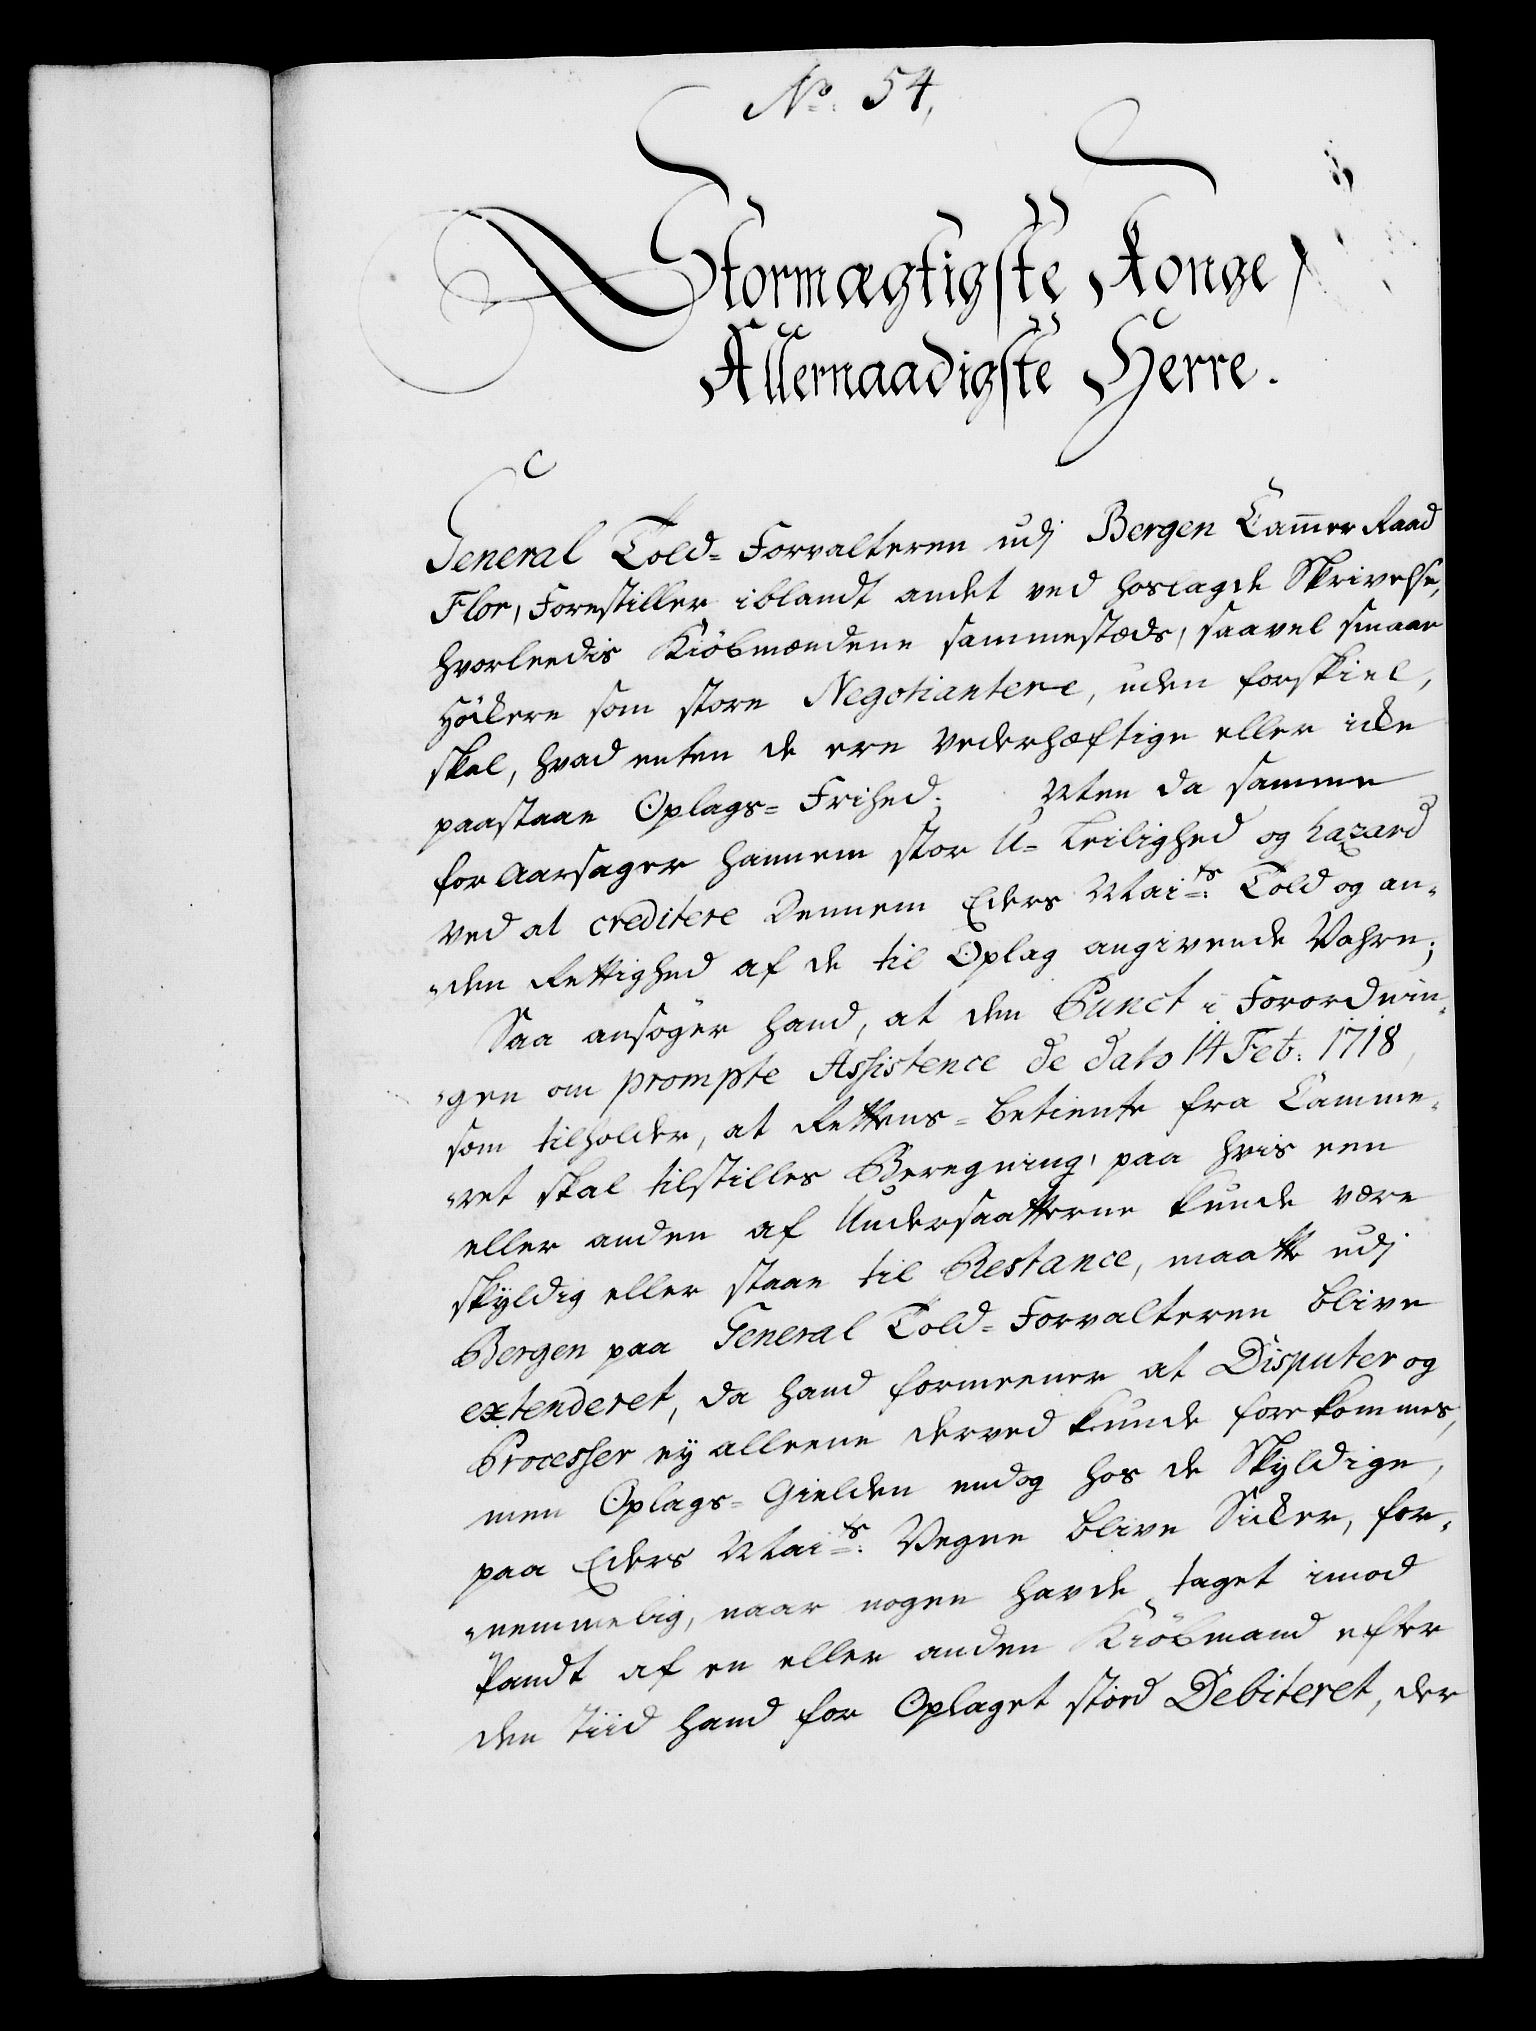 No. 54,
Stormægtigste Konge /
Allernaadigste Herre.
General Told= Forvalteren udj Bergen Cammer Raad
Flor, Forestiller iblandt andet ved hoslagde Skrivelse,
hvorleedis Kiöbmændene sammestæds, saavel smaae
Höckere som store Negotiantere, uden forskiel,
skal, hvad enten de ere Vederhæftige eller icke
paastaae Oplags= Frihed. Men da samme
for Aarsager hannem stor U= Leilighed og hazard
ved at creditere dennem Eders Mai=ts: Told og an=
=den Rettighed af de til Oplag angivende Vahre;
Saa ansöger hand, at den Punct i Forordnin=
=gen om prompte Assistence de dato 14 Feb: 1718,
som tilholder, at Rettens= betiente fra Camme=
=ret skal tilstilles Beregning, paa hvis een
eller anden af Undersaatterne kunde være
skyldig eller staae til Restance, maatte udj
Bergen paa General Told= Forvalteren blive
extenderet, da hand formeener at Disputer og
Processer ey alleene derved kunde forekommes,
men Oplags= Gielden endog hos de Skyldige,
paa Eders Mai=ts: Vegne blive Sicker, for=
=nemmelig, naar nogen havde taget imod
Pandt af en eller anden Kiöbmand efter
den Tiid hand for Oplaget stoed Debiteret, der